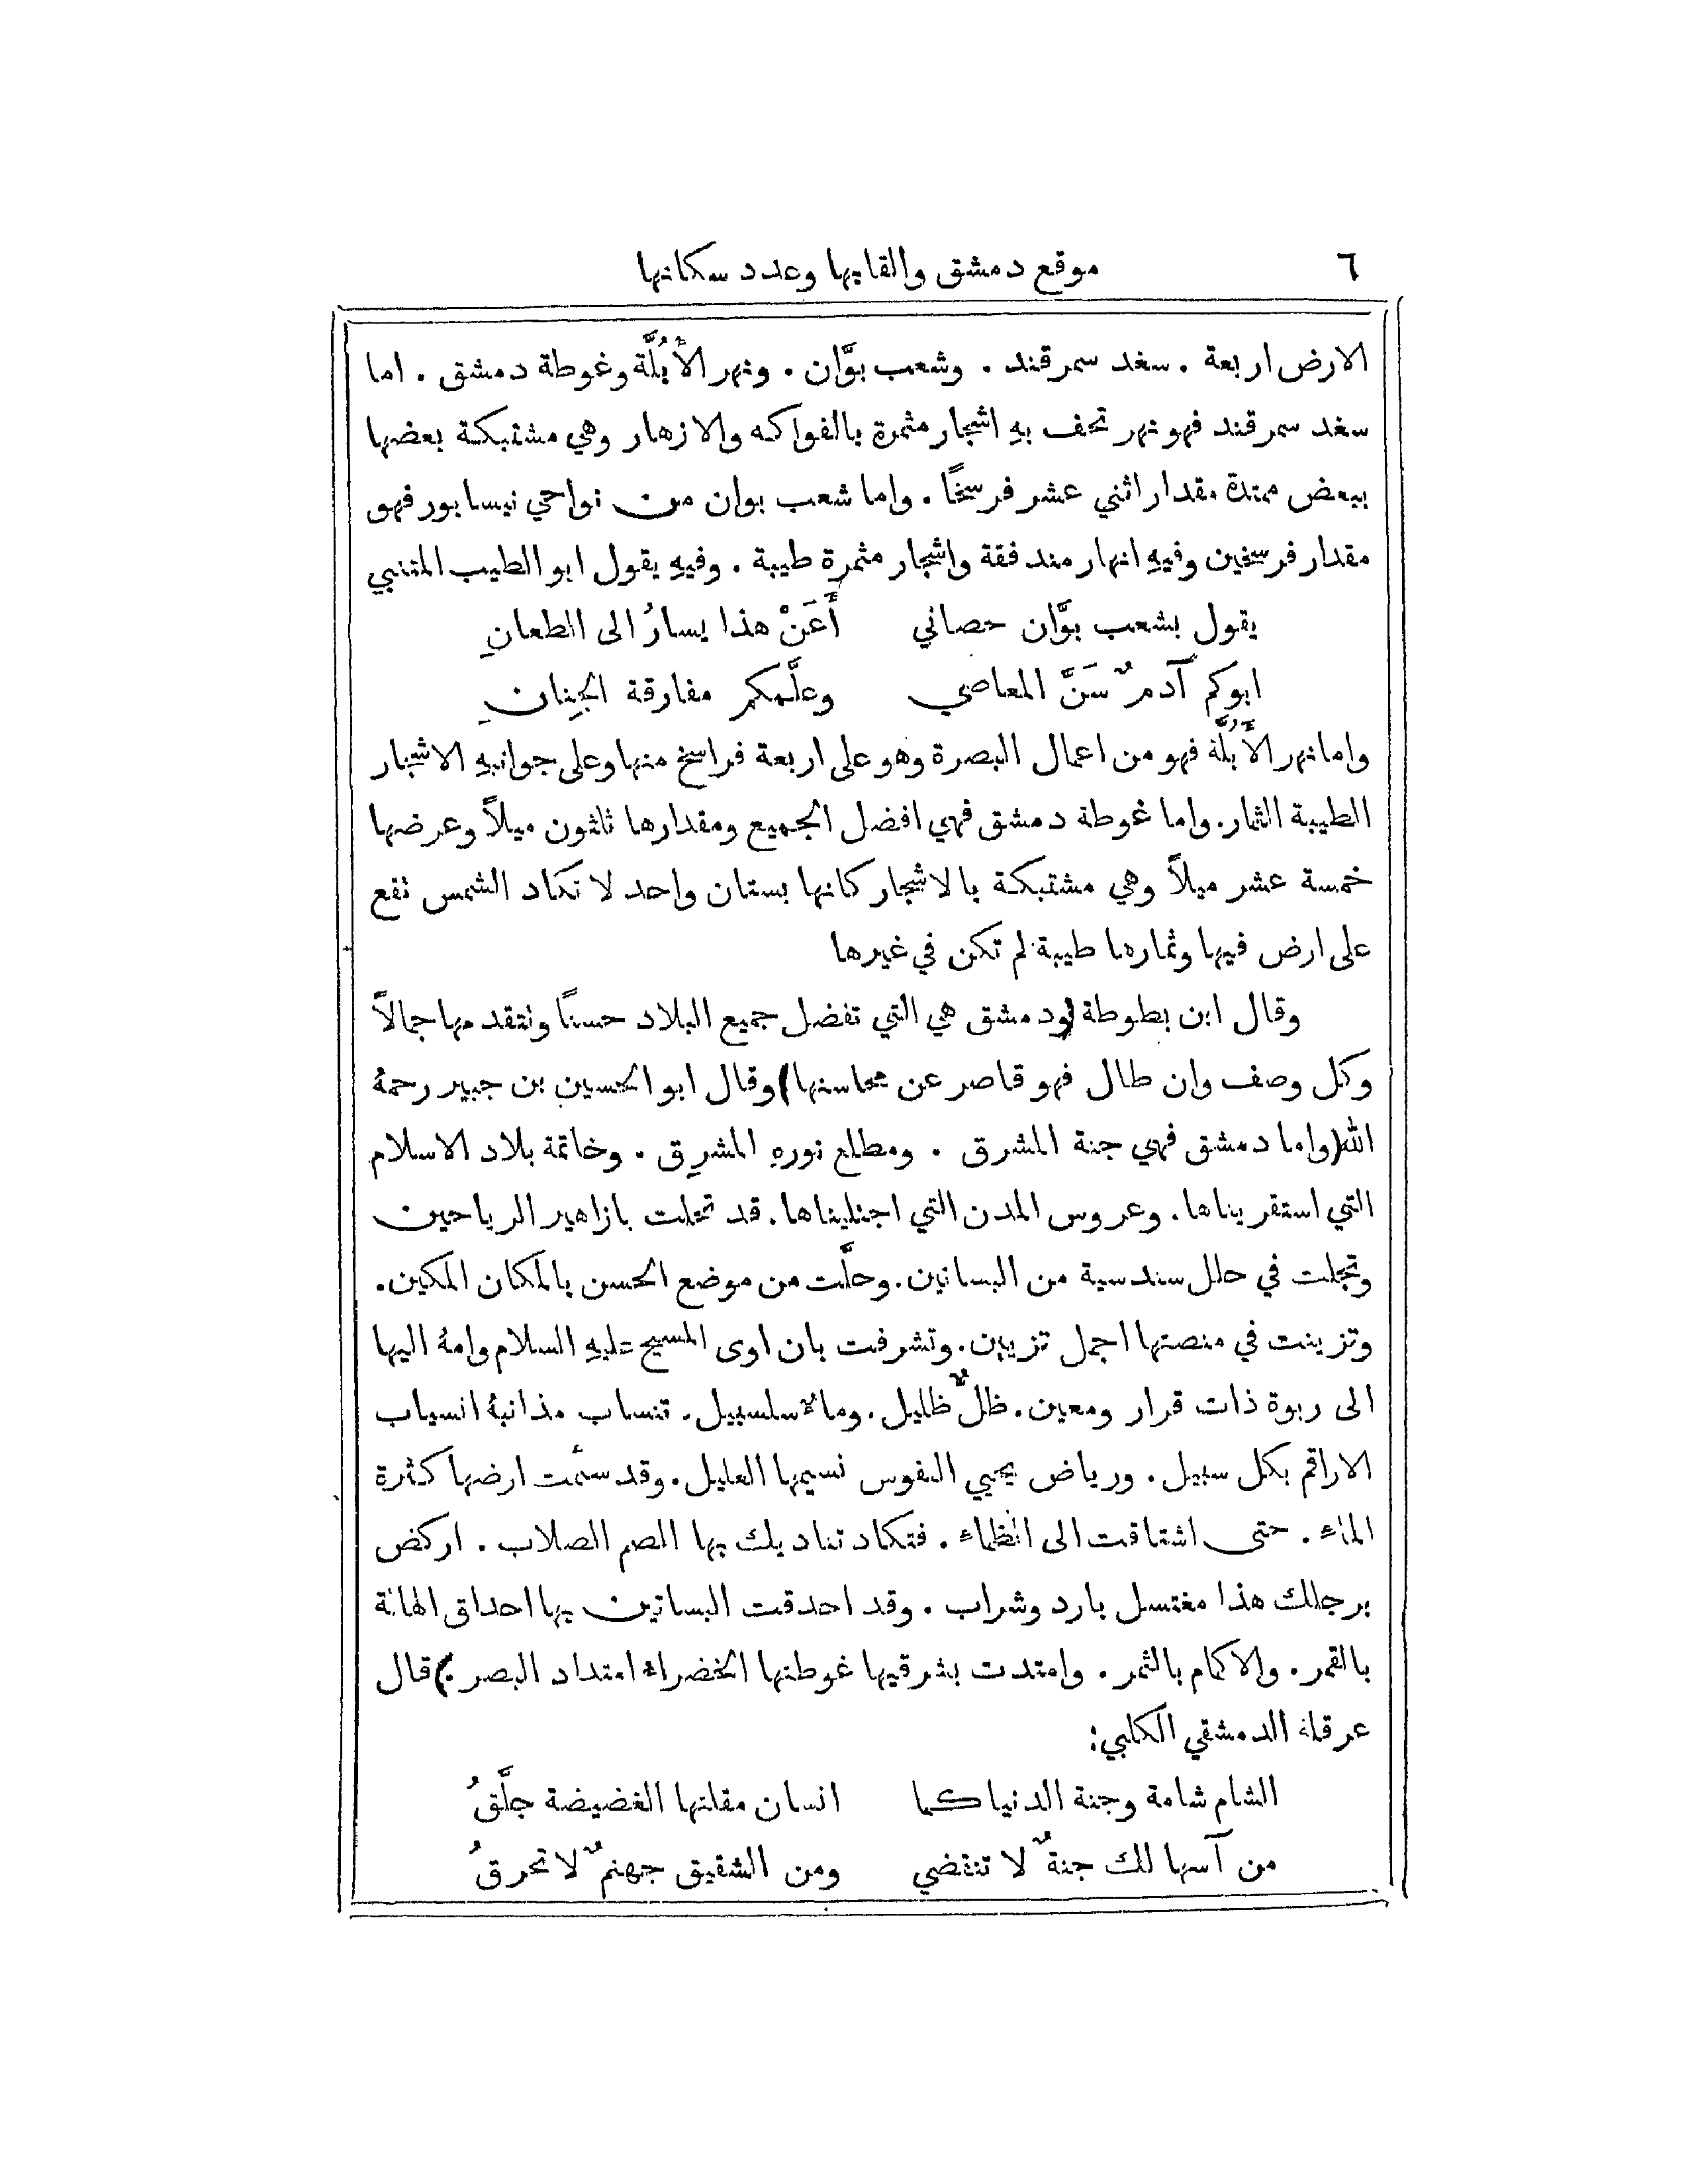 ٦ موقع دمشق والقابها وعدد سكانها
الارض اربعة . سغد سمرقند . وشعب بوَّان . ونهر الأُبُلَّة وغوطة دمشق . اما
سغد سمرقند فهو نهر تحف بهِ اشجار مثمرة بالفواكه والازهار وهي مشتبكة بعضها
ببعض ممتدة مقدار اثني عشر فرسخًا . واما شعب بوان من نواحي نيسابور فهو
مقدار فرسخين وفيهِ انهار مندفقة واشجار مثمرة طيبة . وفيهِ يقول ابو الطيب المتنبي
يقول بشعب بوَّان حصاني أَعَنْ هذا يسارُ الى الطعانِ
ابوكم آدمٌ سَنَّ المعاصي وعلَّمكم مفارقة الجِنانِ
واما نهر الأُبُلَّة فهو من اعمال البصرة وهو على اربعة فراسخ منها وعلى جوانبهِ الاشجار
الطيبة الثمار . واما غوطة دمشق فهي افضل الجميع ومقدارها ثلثون ميلاً وعرضها
خمسة عشر ميلاً وهي مشتبكة بالاشجار كانها بستان واحد لا تكاد الشمس تقع
على ارض فيها وثمارها طيبة لم تكن في غيرها
وقال ابن بطوطة (ودمشق هي التي تفضل جميع البلاد حسنًا وتتقدمها جمالاً
وكل وصف وان طال فهو قاصر عن محاسنها) وقال ابو الحسين بن جبير رحمهُ
الله (واما دمشق فهي جنة المشرق . ومطلع نورهِ المشرِق . وخاتمة بلاد الاسلام
التي استقريناها . وعروس المدن التي اجتليناها . قد تحلت بازاهير الرياحين
وتجلت في حلل سندسية من البساتين . وحلَّت من موضع الحسن بالمكان المكين .
وتزينت في منصتها اجمل تزيين . وتشرفت بان اوى المسيح عليهِ السلام وامهُ اليها
الى ربوة ذات قرار ومعين . ظلٌّ ظليل . وماءٌ سلسبيل . تنساب مذانبهُ انسياب
الاراقم بكل سبيل . ورياض يحيي النفوس نسيمها العليل . وقد سئمت ارضها كثرة
الماء . حتى اشتاقت الى الظماء . فتكاد تناديك بها الصم الصلاب . اركض
برجلك هذا مغتسل بارد وشراب . وقد احدقت البساتين بها احداق الهالة
بالقمر . والاكمام بالثمر . وامتدت بشرقيها غوطتها الخضراء امتداد البصر .) قال
عرقلة الدمشقي الكلبي:
الشام شامة وجنة الدنيا كما انسان مقلتها الغضيضة جلَّقُ
من آسها لك جنةٌ لا تنقضي ومن الشقيق جهنمٌ لا تحرقُ